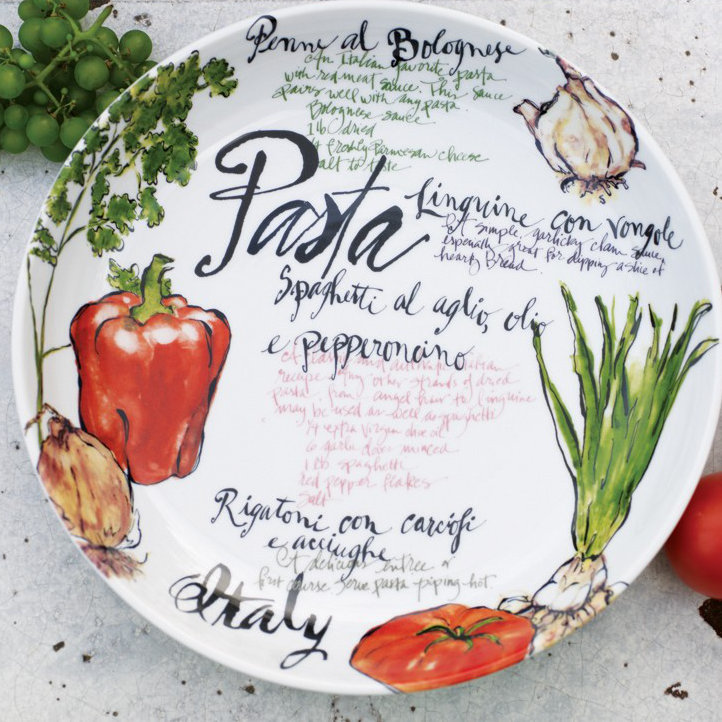 Penne al Bolognese
An Italian favorite pasta
with red meat sauce. This sauce
pairs well with any pasta.
Bolognese sauce
1 lb dried
freshly Parmesan cheese
salt to taste
Pasta
Linguine con vongole
A simple, garlicky clam sauce,
especially great for dipping a slice of
hearty Bread.
Spaghetti al aglio, olio
e pepperoncino
Italian
recipe Any other strands of dried
pasta from angel hair to linguine
may be used as well as spaghetti
1/4 extra virgin olive oil
6 garlic cloves minced
1 lb spaghetti
red pepper flakes
Salt
Rigatoni con carciofi
e acciughe
A delicious entree or
first course serve pasta piping-hot
Italy